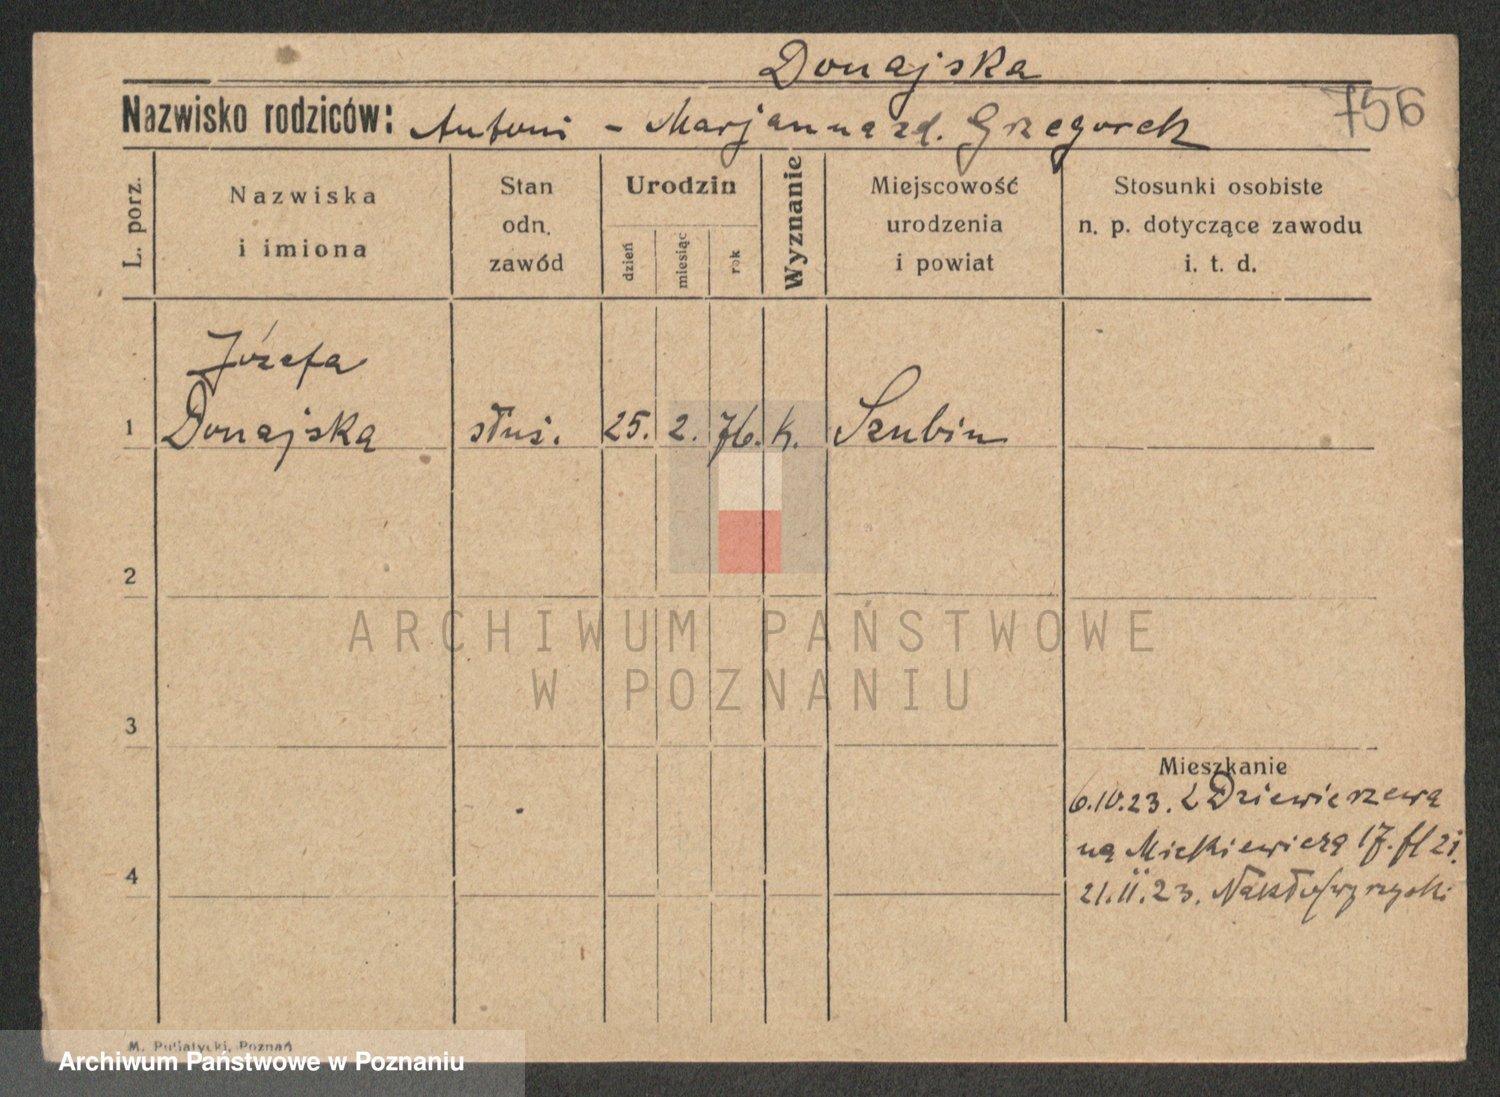 Donajska
Nazwisko rodziców: Antoni - Marjanna zd. Grzegorek
756
L. porz.
Nazwiska
i imiona
Stan
odn.
zawód
Urodzin
dzień
miesiąc
rok
Wyznanie
Miejscowość
urodzenia
i powiat
Stosunki osobiste
n. p. dotyczące zawodu
i. t. d.
Józefa
1 Donajska służ. 25. 2. 76. k. Szubin
2
ARCHIWUM PAŃSTWOWE
W POZNANIU
3
Mieszkanie
6.IV.23. z Dziewierzewa
na Mickiewicza 17.
4
21.II.23. Nakło/wyrzyski
M. Putiatycki, Poznań
Archiwum Państwowe w Poznaniu